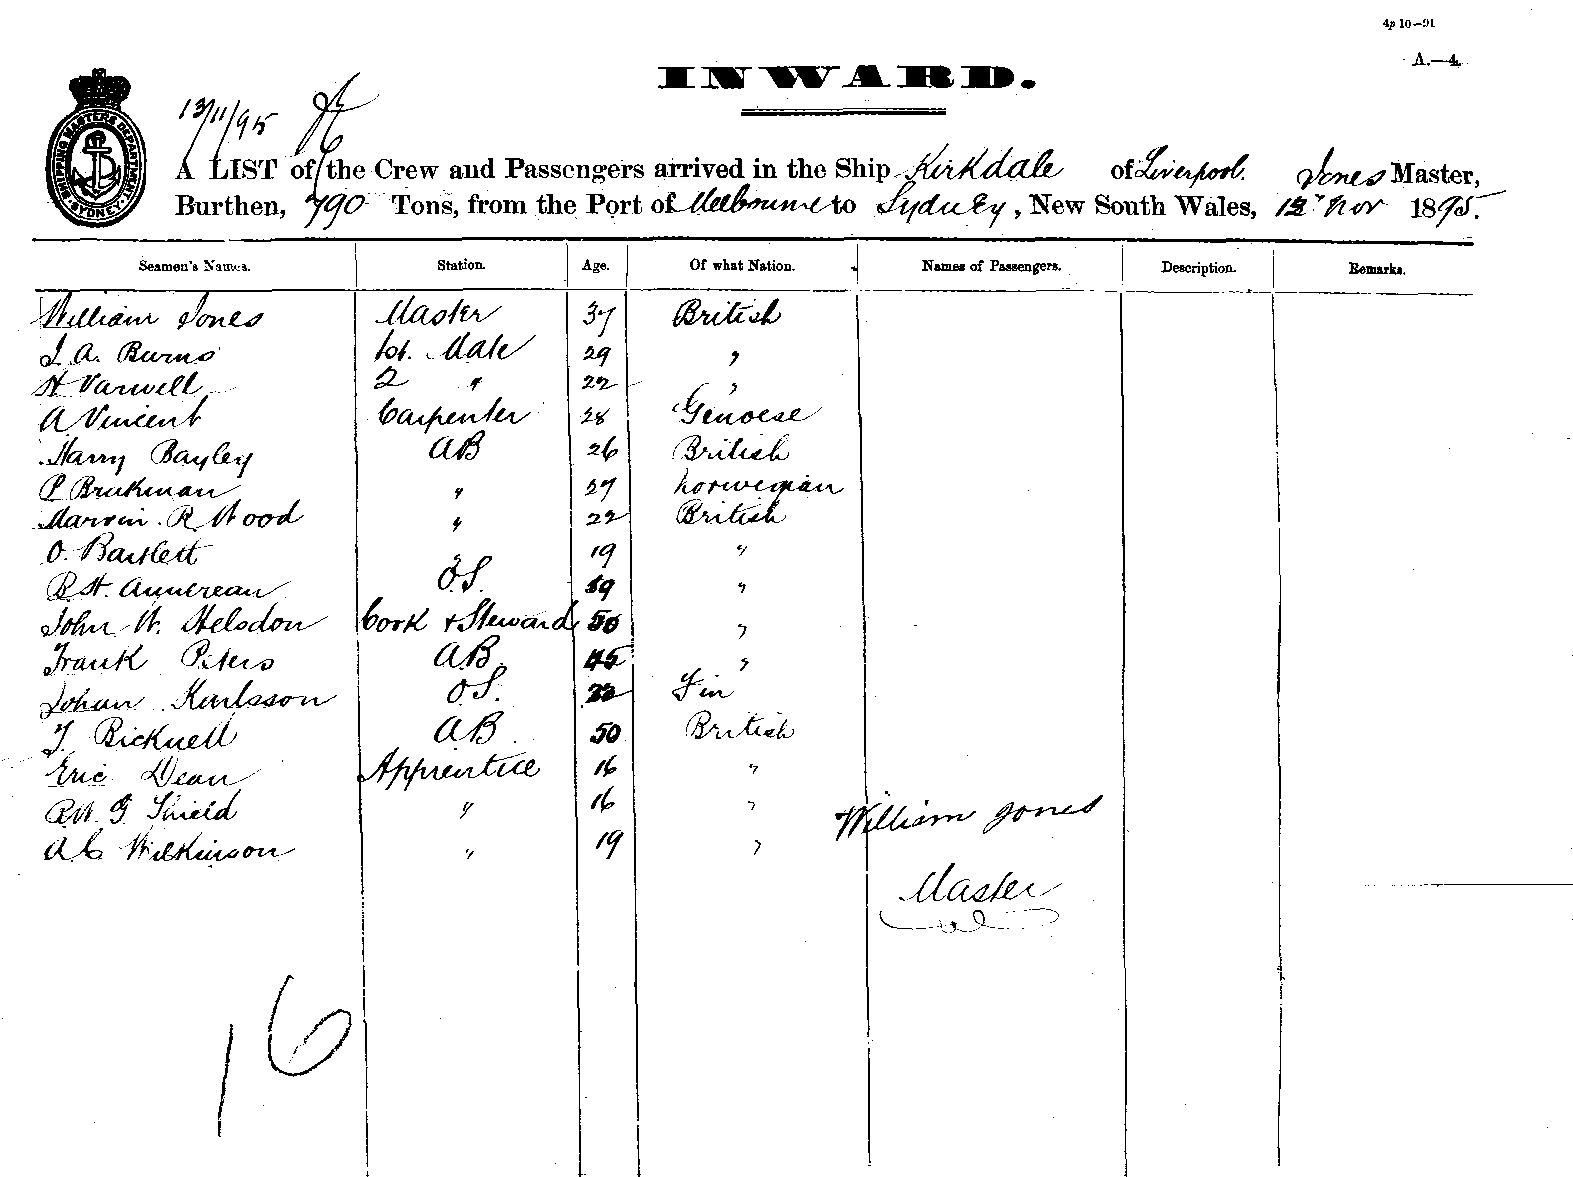 4p 10—91
A.—4.
INWARD.
SHIPPING MASTERS DEPARTMENT SYDNEY
13/11/95
A LIST of the Crew and Passengers arrived in the Ship Kirkdale of Liverpool. Jones Master,
Burthen, 790 Tons, from the Port of Melbourne to Sydney, New South Wales, Nov 1895.
Seamen's Names. Station. Age. Of what Nation. Names of Passengers. Description. Remarks.
William Jones Master 37 British
J. A. Burns 1st. Mate 29 "
H Varwell 2 " 22 "
A Vincent Carpenter 28 Genoese
Harry Bayley AB 26 British
P Brukman " 27 Norwegian
Marvin R Wood " 22 British
O. Bartlett 19 "
R H. O.S. 19 "
John W. Helsdon Cook & Steward 50 "
Frank Peters AB. 45 "
Johan Karlsson O.S. 22 Fin
T. Bicknell AB 50 British
Eric Dean Apprentice 16 "
R W. G Shield " 16 "
A C Wilkinson " 19 "
William Jones
Master
16